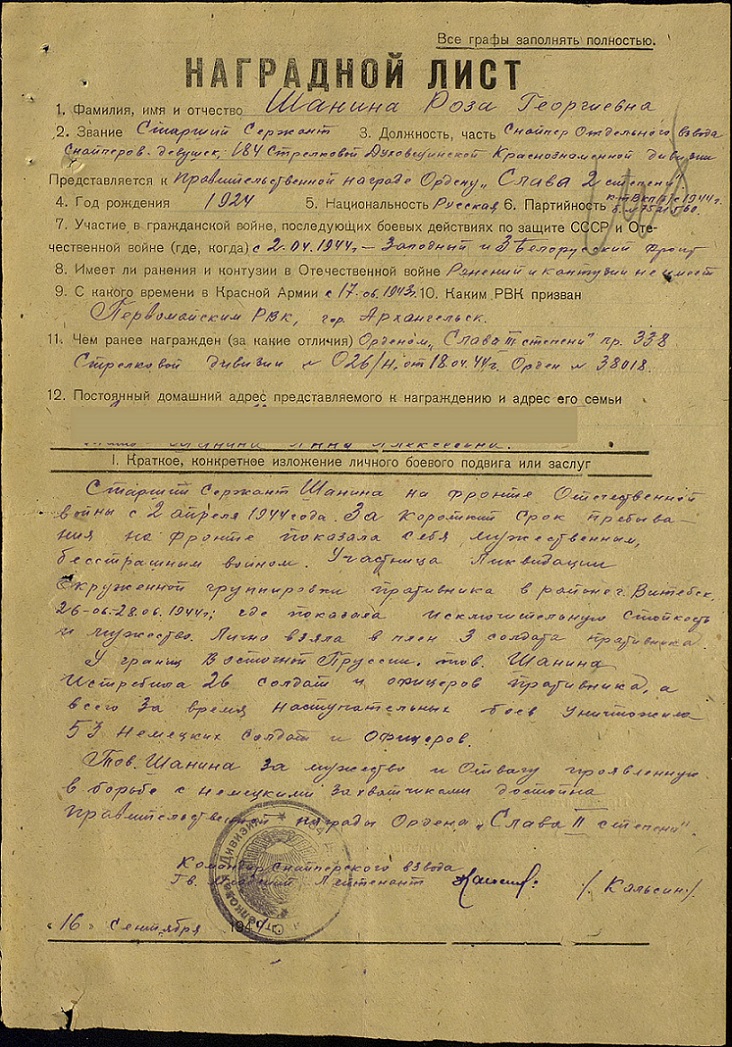 Все графы заполнять полностью.
НАГРАДНОЙ ЛИСТ
1. Фамилия, имя и отчество Шанина Роза Георгиевна
2. Звание Старший Сержант 3. Должность, часть Снайпер Отдельного взвода
Снайперов-девушек, 184 Стрелковой Духовщинской Краснознаменной дивизии
Представляется к правительственной награде Ордену „Слава 2 степени"
4. Год рождения 1924 5. Национальность Русская 6. Партийность к-т ВКП(б) с 1944г.
7. Участие в гражданской войне, последующих боевых действиях по защите СССР и Оте-
чественной войне (где, когда) с 2.04.1944г – Западный и 3 Белорусский фронт
8. Имеет ли ранения и контузии в Отечественной войне Ранений и контузии не имеет
9. С какого времени в Красной Армии с 17.06.1943г. 10. Каким РВК призван
Первомайским РВК, гор. Архангельск.
11. Чем ранее награжден (за какие отличия) Орденом „Слава III степени" пр. 338
Стрелковой дивизии № 026/н, от 18.04.44г. Орден № 38018.
12. Постоянный домашний адрес представляемого к награждению и адрес его семьи
Шанина Анна Алексеевна.
I. Краткое, конкретное изложение личного боевого подвига или заслуг
Старший Сержант Шанина на фронте Отечественной
войны с 2 апреля 1944 года. За короткий срок пребыва-
ния на фронте показала себя мужественным,
бесстрашным воином. Участница Ликвидации
Окруженной группировки противника в районе г. Витебск,
26-06-28.06.1944г; где показала исключительную стойкость
и мужество. Лично взяла в плен 3 солдата противника.
У границ Восточной Пруссии. тов. Шанина
Истребила 26 солдат и офицеров противника, а
всего за время наступательных боев уничтожила
53 Немецких солдат и офицеров.
Тов. Шанина за мужество и Отвагу проявленную
в борьбе с немецкими захватчиками достойна
правительственной награды Ордена „Слава II степени".
Командир снайперского взвода
Гв. Младший Лейтенант /. Кольсин/.
«16» Сентября 194
Стрелковая Дивизия ★ 184